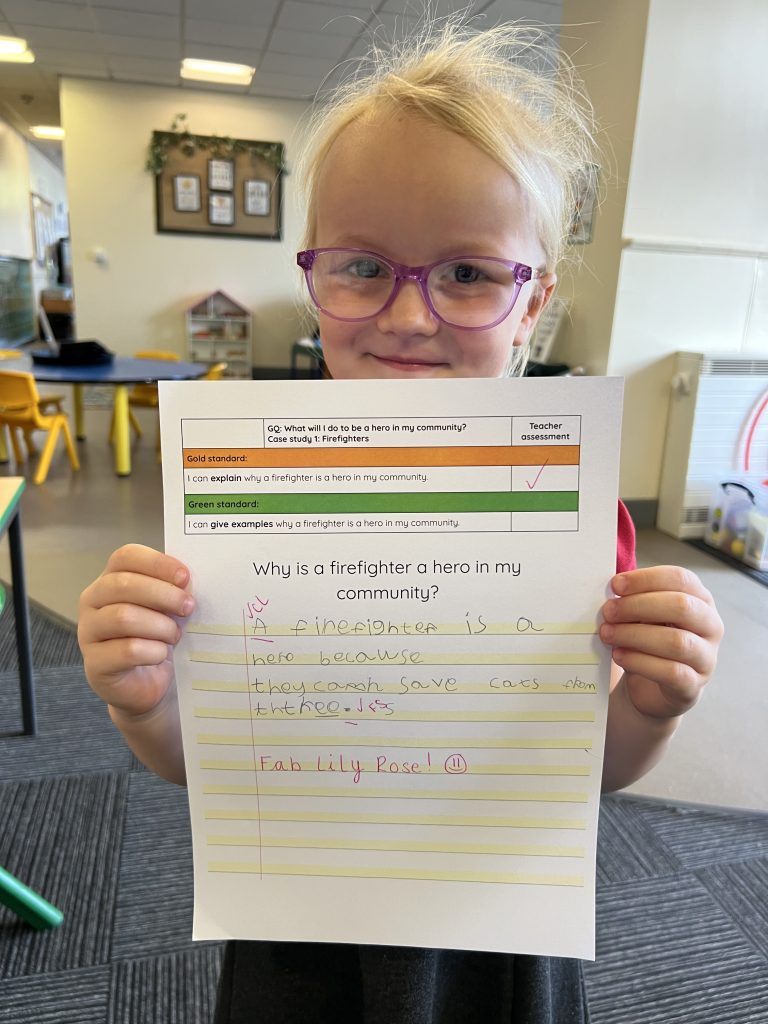 GQ: What will I do to be a hero in my community?
Case study 1: Firefighters
Teacher assessment
Gold standard:
I can explain why a firefighter is a hero in my community.
Green standard:
I can give examples why a firefighter is a hero in my community.
Why is a firefighter a hero in my
community?
√CL
A firefighter is a
hero because
they save cats from
√FS
Fab Lily Rose!